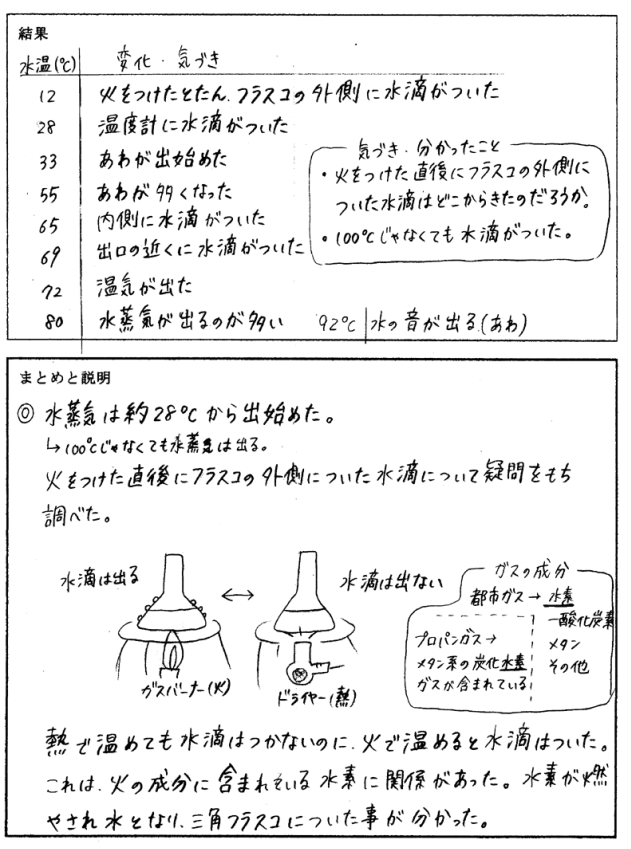 結果
水温(℃) 変化・気づき
12 火をつけたとたん、フラスコの外側に水滴がついた
28 温度計に水滴がついた
33 あわが出始めた
55 あわが多くなった
65 内側に水滴がついた
69 出口の近くに水滴がついた
72 温気が出た
80 水蒸気が出るのが多い 92℃ 水の音が出る(あわ)
気づき・分かったこと
・火をつけた直後にフラスコの外側に
ついた水滴はどこからきたのだろうか。
・100℃じゃなくても水滴がついた。
まとめと説明
◎ 水蒸気は約28℃から出始めた。
↳100℃じゃなくても水蒸気は出る。
火をつけた直後にフラスコの外側についた水滴について疑問をもち
調べた。
水滴は出る ↔ 水滴は出ない
ガスバーナー(火) ドライヤー(熱)
ガスの成分
都市ガス→水素
一酸化炭素
メタン
その他
プロパンガス→
メタン系の炭化水素
ガスが含まれている
熱で温めても水滴はつかないのに、火で温めると水滴はついた。
これは、火の成分に含まれている水素に関係があった。水素が燃
やされ水となり、三角フラスコについた事が分かった。